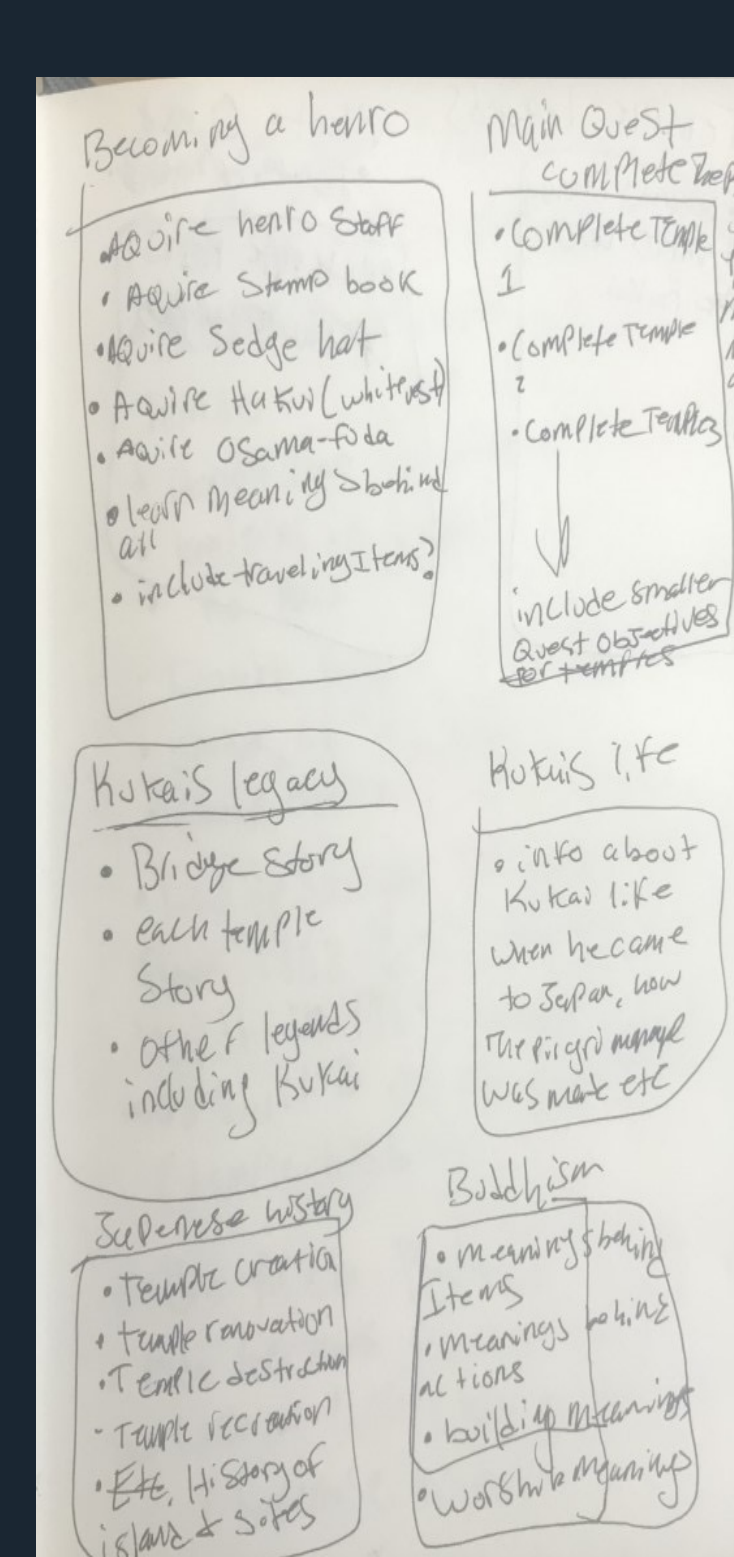 Becoming a henro
• AQuire henro Staff
• AQuire Stamp book
• AQuire Sedge hat
• Aquire Hakui (white vest)
• AQuire Osama-fuda
• learn meanings behind
all
• include traveling Items?
Main Quest
complete
• Complete Temple
1
• Complete Temple
2
• Complete Temple 3
include smaller
Quest objectives
for temples
Kukais legacy
• Bridge Story
• each temple
Story
• other legends
including Kukai
Kukais life
• info about
Kukai life
when he came
to Japan, how
The
was made etc
Japenese history
• Temple creation
• temple renovation
• Temple destruction
- Temple recreation
• Etc. History of
island & sites
Buddhism
• meanings behind
Items
• meanings behind
actions
• building meanings
• Worship meanings